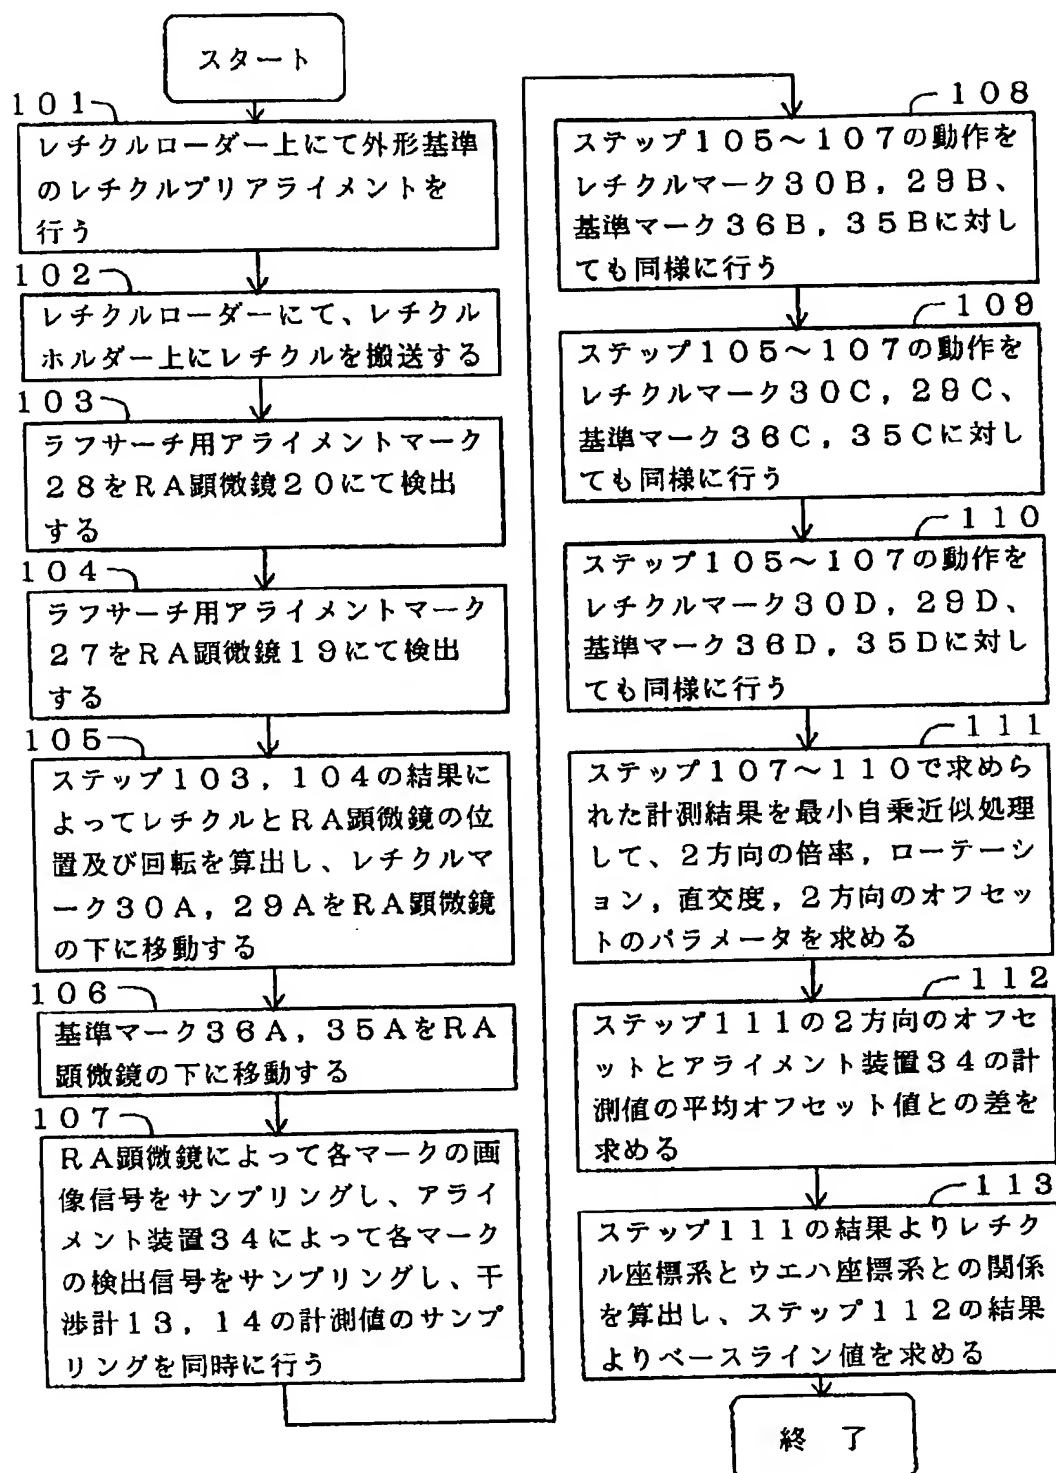 スタート
101
レチクルローダー上にて外形基準
のレチクルプリアライメントを
行う
102
レチクルローダーにて、レチクル
ホルダー上にレチクルを搬送する
103
ラフサーチ用アライメントマーク
28をRA顕微鏡20にて検出
する
104
ラフサーチ用アライメントマーク
27をRA顕微鏡19にて検出
する
105
ステップ103,104の結果に
よってレチクルとRA顕微鏡の位
置及び回転を算出し、レチクルマ
ーク30A,29AをRA顕微鏡
の下に移動する
106
基準マーク36A,35AをRA
顕微鏡の下に移動する
107
RA顕微鏡によって各マークの画
像信号をサンプリングし、アライ
メント装置34によって各マーク
の検出信号をサンプリングし、干
渉計13,14の計測値のサンプ
リングを同時に行う
108
ステップ105~107の動作を
レチクルマーク30B,29B、
基準マーク36B,35Bに対し
ても同様に行う
109
ステップ105~107の動作を
レチクルマーク30C,29C、
基準マーク36C,35Cに対し
ても同様に行う
110
ステップ105~107の動作を
レチクルマーク30D,29D、
基準マーク36D,35Dに対し
ても同様に行う
111
ステップ107~110で求めら
れた計測結果を最小自乗近似処理
して、2方向の倍率,ローテーシ
ョン,直交度,2方向のオフセッ
トのパラメータを求める
112
ステップ111の2方向のオフセ
ットとアライメント装置34の計
測値の平均オフセット値との差を
求める
113
ステップ111の結果よりレチク
ル座標系とウエハ座標系との関係
を算出し、ステップ112の結果
よりベースライン値を求める
終 了